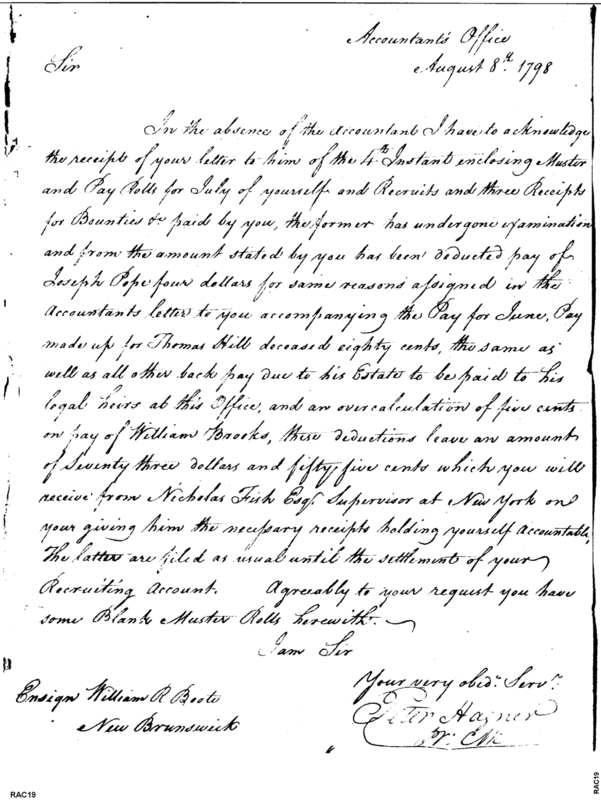 Accountant's Office
Sir August 8th. 1798
In the absence of the Accountant I have to acknowledge
the receipt of your letter to him of the 4th Instant enclosing Muster
and Pay Rolls for July of yourself and Recruits and three Receipts
for Bounties &c paid by you, the former has undergone examination
and from the amount stated by you has been deducted pay of
Joseph Pope four dollars for same reasons assigned in the
Accountants letter to you accompanying the Pay for June, Pay
made up for Thomas Hill deceased eighty cents, the same as
well as all other back pay due to his Estate to be paid to his
legal heirs at this Office, and an overcalculation of five cents
on pay of William Brooks, these deductions leave an amount
of Seventy three dollars and fifty five cents which you will
receive from Nicholas Fish Esqr. Supervisor at New York on
your giving him the necessary receipts holding yourself Accountable,
The latter are filed as usual until the settlement of your
Recruiting Account. Agreeably to your request you have
some Blank Muster Rolls herewith.
I am Sir
Your very obedt. Servt.
Ensign William R Boote Peter Hagner
New Brunswick Pr. Clk
RAC19
RAC19